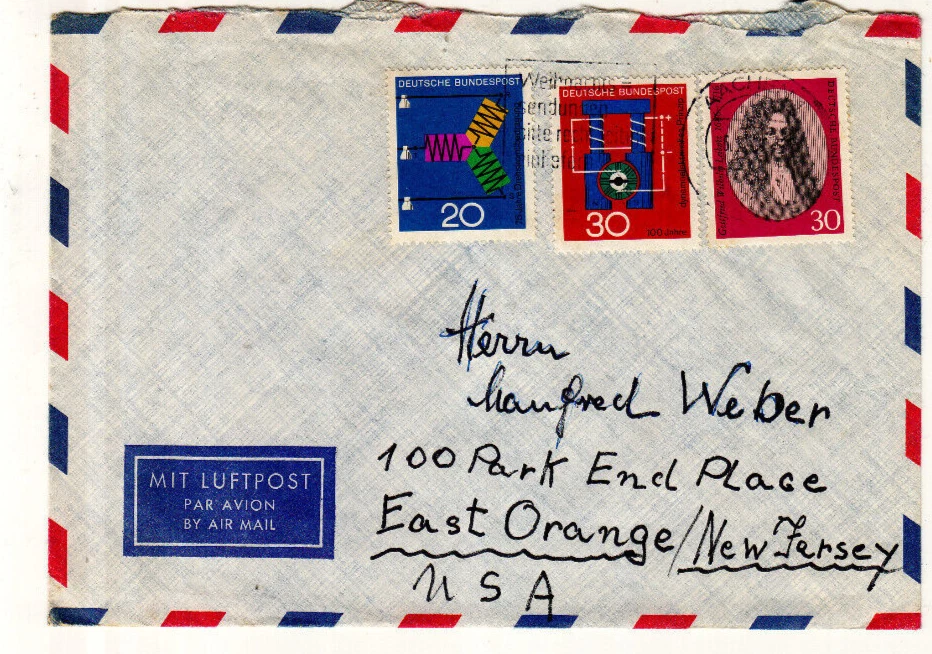 DEUTSCHE BUNDESPOST
20
DEUTSCHE BUNDESPOST
dynamoelektrisches Prinzip
100 Jahre
30
Gottfried Wilhelm Leibniz
DEUTSCHE BUNDESPOST
30
sendungen
bitte
Herrn
Manfred Weber
100 Park End Place
East Orange/New Jersey
USA
MIT LUFTPOST
PAR AVION
BY AIR MAIL